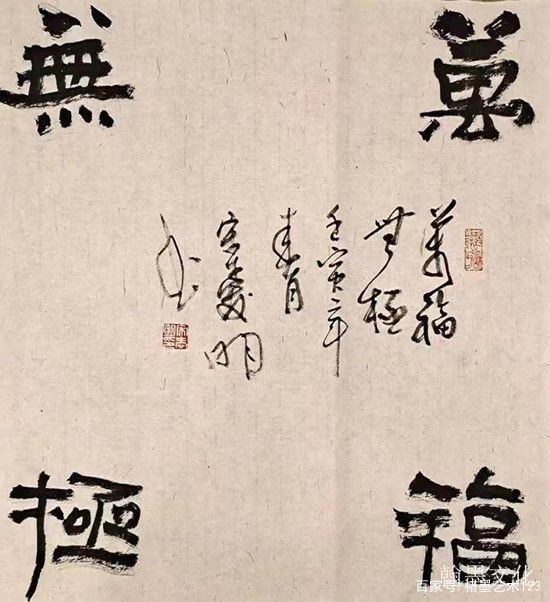 萬福
無極
萬福
無極
壬寅年
春月
宋愛明
书
翰墨文化
百家号/楮墨艺术123